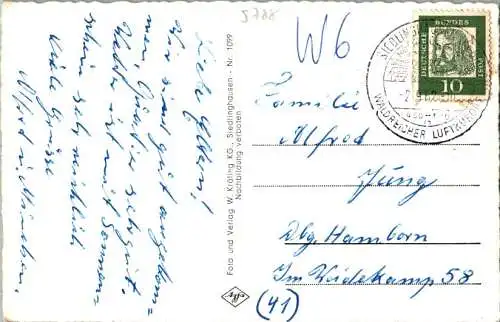 5788
W6
Liebe Eltern!
Wir sind gut angekom=
men, Quartier sehr gut.
Wetter mit Sonnen=
schein sehr
Viele Grüße
Alfred u.
Foto und Verlag W. Kräling KG., Siedlinghausen - Nr. 1099
Nachbildung verboten
DEUTSCHE BUNDESPOST
10
SIEDLING
WALDREICHER LUFTKURORT
Familie
Alfred
Jung
Dbg. Hamborn
Im Heidekamp 58
(41)